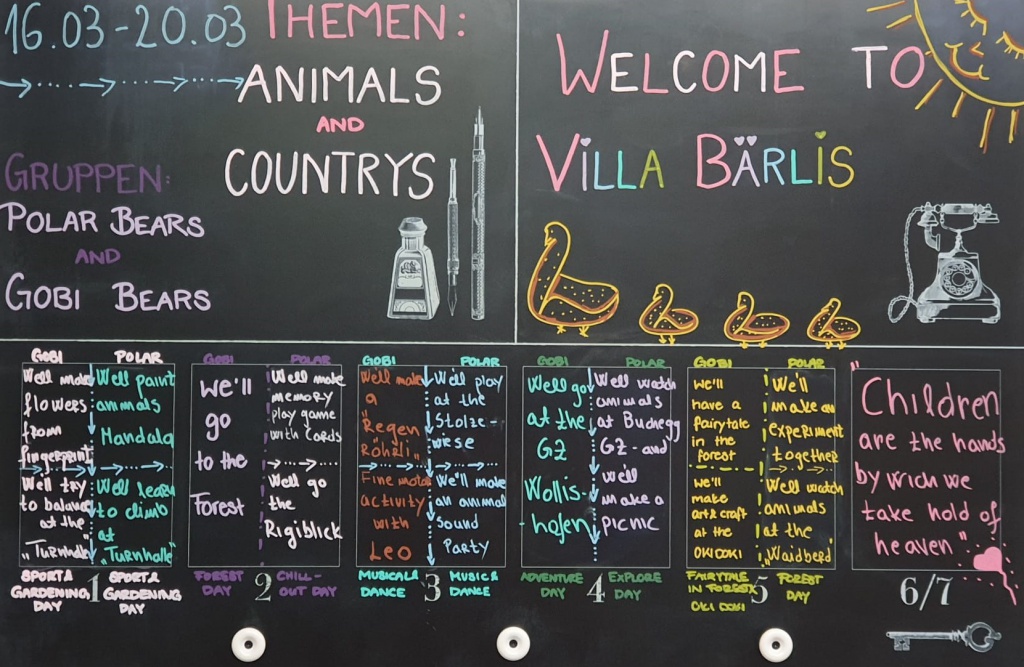 16.03-20.03
THEMEN:
ANIMALS
AND
COUNTRYS
GRUPPEN:
POLAR BEARS
AND
GOBI BEARS
WELCOME TO
VILLA BÄRLIS
GOBI
We'll make
flowers
from
fingerprint
We'll try
to balance
at the
"Turnhalle"
SPORT &
GARDENING
DAY
POLAR
We'll paint
animals
Mandala
We'll learn
to climb
at
"Turnhalle"
SPORT &
GARDENING
DAY
1
GOBI
We'll
go
to the
Forest
FOREST
DAY
POLAR
We'll make
memory
play game
with cards
We'll go
the
Rigiblick
CHILL-
OUT DAY
2
GOBI
We'll make
a
"Regen
Röhrli"
Fine motor
activity
with
Leo
MUSICAL &
DANCE
POLAR
We'll play
at the
Stolze-
wiese
We'll make
an animal
sound
Party
MUSIC &
DANCE
3
GOBI
We'll go
at the
GZ
Wollis-
-hofen
ADVENTURE
DAY
POLAR
We'll watch
animals
at Buchegg
GZ - and
we'll
make a
picnic
EXPLORE
DAY
4
GOBI
we'll
have a
fairytale
in the
forest
we'll
make
art & craft
at the
OKIDOKI
FAIRYTALE
IN FOREST &
OKI DOKI
POLAR
We'll
make an
experiment
together
We'll watch
animals
at the
"Waidberg"
FOREST
DAY
5
"Children
are the hands
by wich we
take hold of
heaven"
6/7